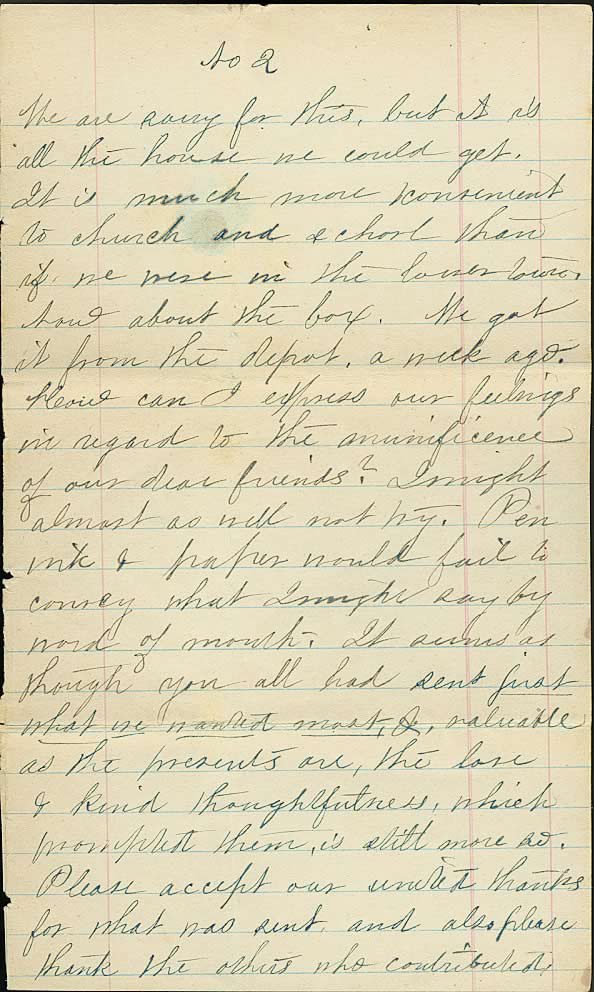 No 2
We are sorry for this, but it is
all the house we could get.
It is much more konvenient
to church and school than
if we were in the lower town.
Now about the box. We got
it from the depot, a week ago.
How can I express our feelings
in regard to the munificence
of our dear friends? I might
almost as well not try. Pen
ink & paper would fail to
convey what I might say by
word of mouth. It seems as
though you all had sent just
what we wanted most, &, valuable
as the presents are, the love
& kind thoughtfulness, which
prompted them, is still more so.
Please accept our united thanks
for what was sent, and also please
thank the others who contributed.